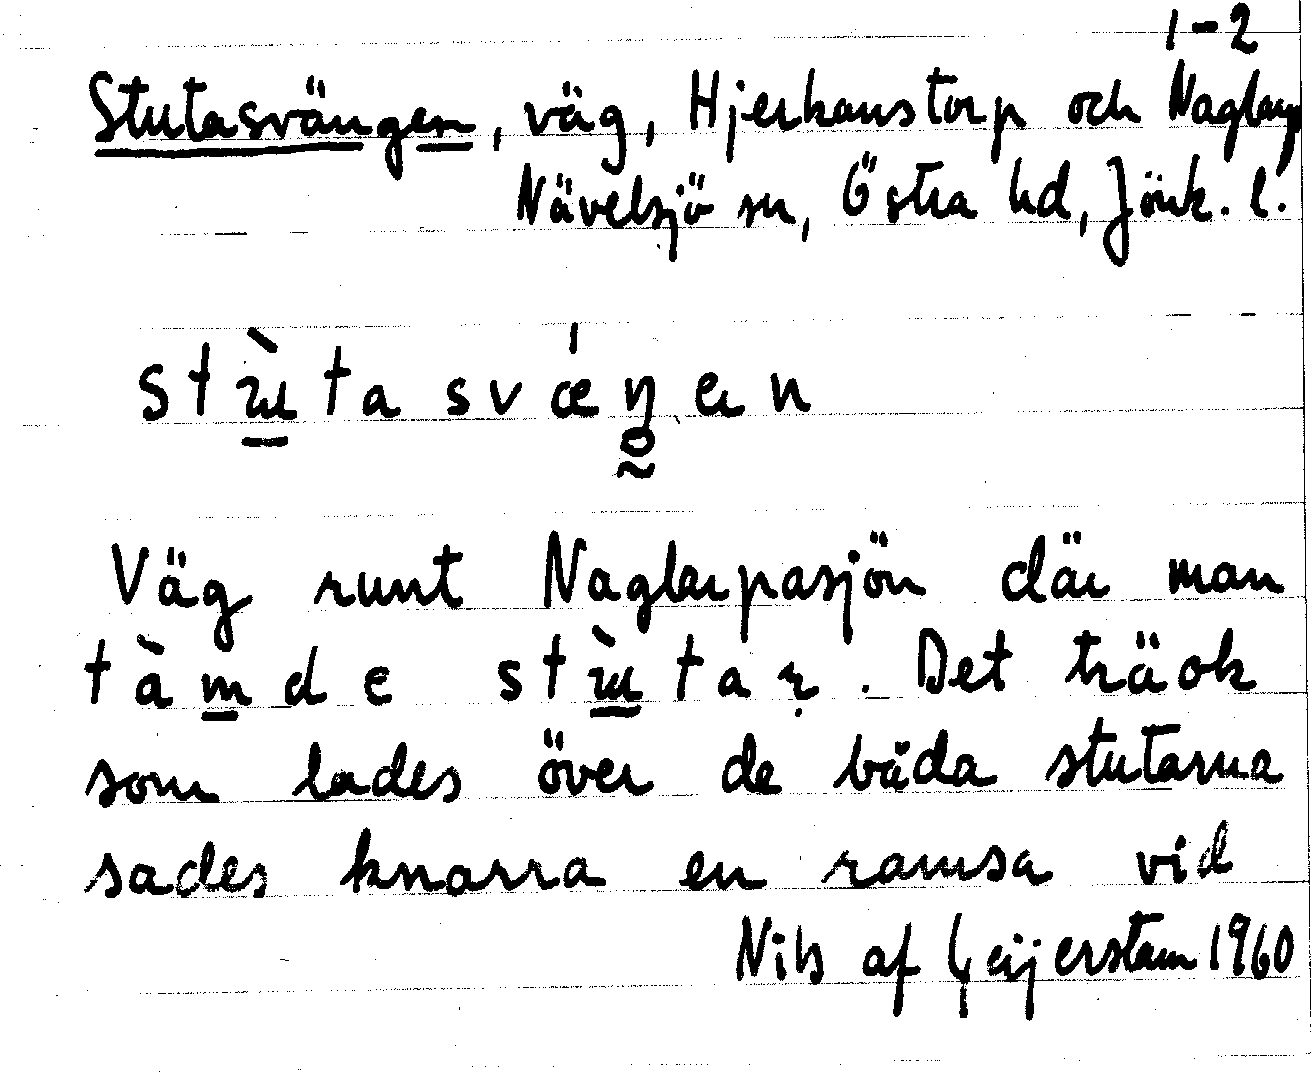 1-2
Stutasvängen, väg, Hjerkanstorp och Naglarp
Nävelsjö sn, Östra hd, Jönk. l.
stùtasvǽŋen
Väg runt Naglarpasjön där man
tàmde stùtaɽ. Det träok
som lades över de båda stutarna
sades knarra en ramsa vid
Nils af Geijerstam 1960